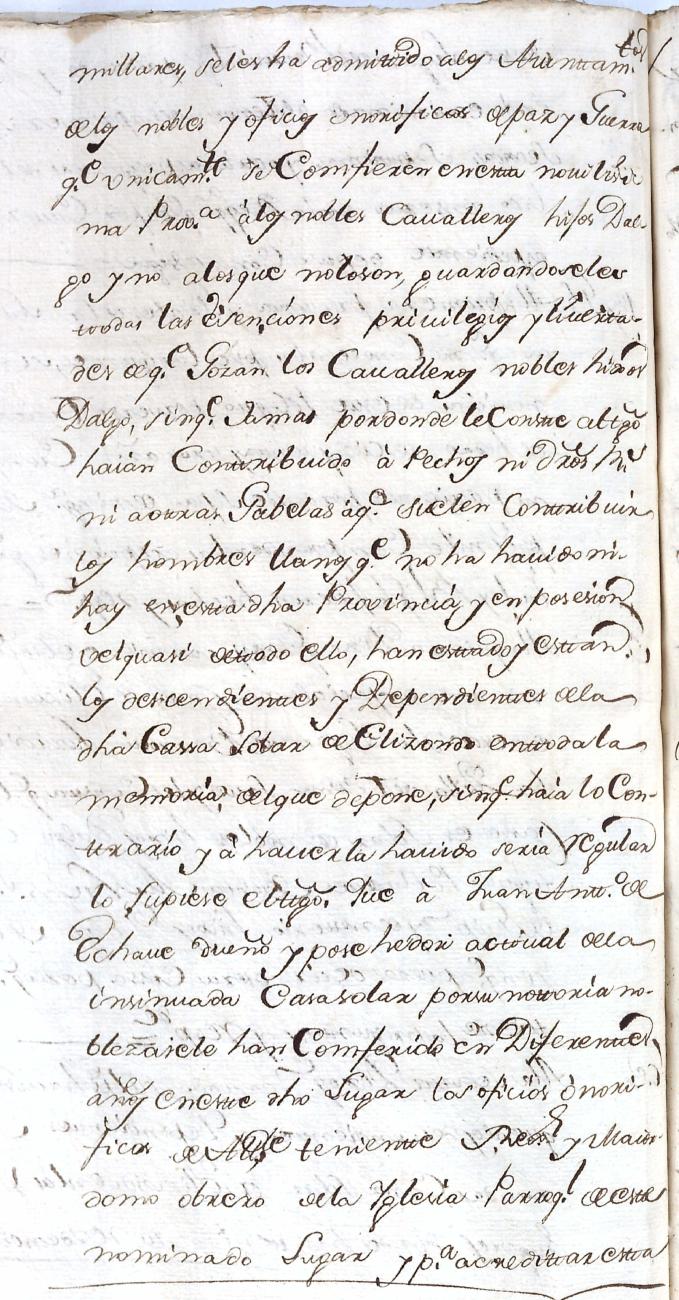 millares, seles ha admittido alos Aiuntam.tos
de los nobles y oficios onorificos de paz y Guerra
q.e vnicam.te se Comfieren enesta nouilissi
ma Prov.a à los nobles Cavalleros hijos Dal-
go y no alosque noloson, guardandoseles
toodas las esenciones privilegios y liverta-
des de q.e Gozan los Cavalleros nobles hixos
Dalgo, sinq.e Jamas pordonde le Conste al tgo
haian Contribuido à Pechos ni dros
ni aotras Gabelas áq.e suelen Contribuir
los hombres llanos q.e no ha havido ni-
hay enesta dha Provincia, y en posesion
velquasi detodo ello, han estado y estan
los descendientes y Dependientes dela
dha Cassa Solar de Elizondo entoda la
memoria, delque depone, sinq.e haia lo Con-
trario y à haverla havido seria Regular
lo supiese el tgo. Que à Juan Antt.o de
Echave dueño y posehedor actual dela
insinuada Casasolar porsu notoria no-
bleza sele han Comferido en Diferentes
años eneste dho Lugar los oficios onori-
ficos de Alc.e teniente Rexor y Maior
domo obrero dela Yglesia Parroq.l de este
nominado Lugar y p.a acreditar esta